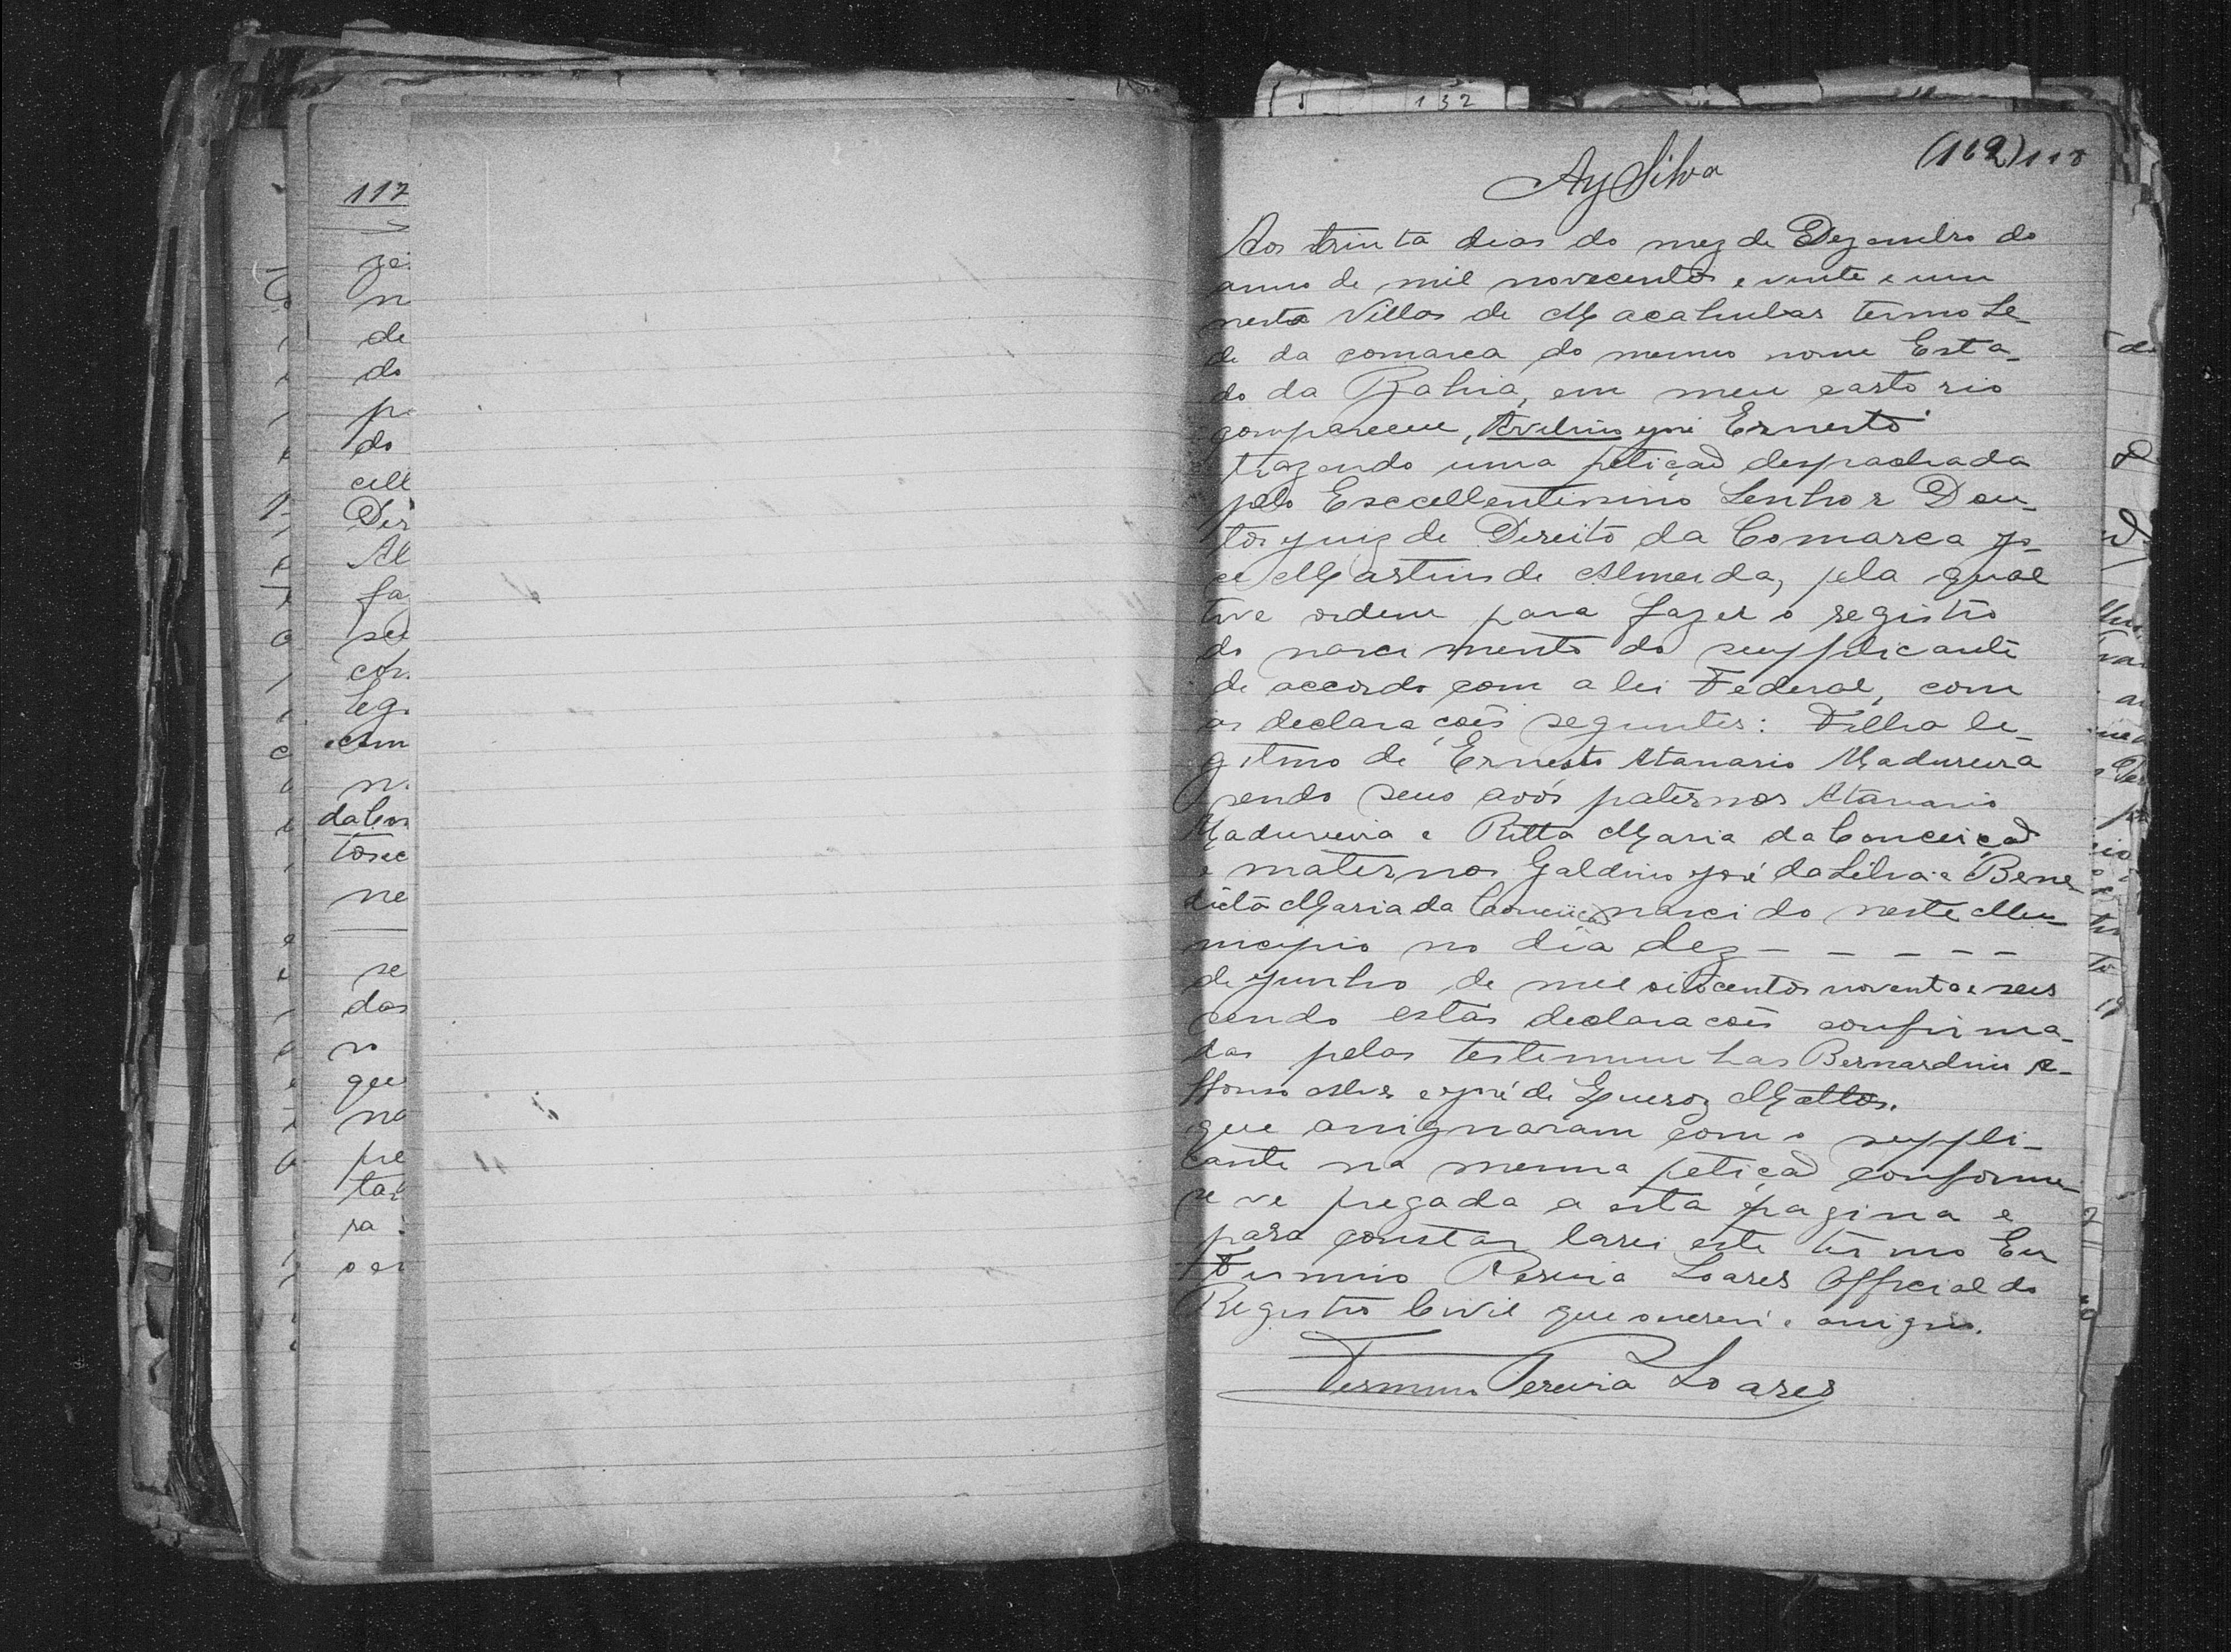 117
ge
n
de
do
p
do
cill
Dir
Al
fa
seu
con
leg
com
n
da Con
tosec
ne
se
das
no
que
na
pre
tar
ra
132
(162) 118
Ay Silva
Aos trinta dias do mez de Dezembro do
anno de mil novecentos e vinte e um
nesta Villa de Macahubas termo Se-
de da comarca do mesmo nome Esta-
do da Bahia, em meu cartorio
compareceu, Avelino José Ernesto
trazendo uma petição despachada
pelo Exccellentissimo Senhor Dou-
tor Juiz de Direito da Comarca Jo-
se Martins de Almeida, pela qual
tive ordem para fazer o registro
do nascimento do supplicante
de accordo com a lei Federal, com
as declarações seguntes: Filho le-
gitmo de Ernesto Atanario Madureira
sendo seus avós paternos Atanario
Madureira e Ritta Maria da Conceição
e maternos Galdino José da Silva e Bene-
dicta Maria da Conceição nascido neste Mu-
nicipio no dia dez - - - - -
de Junho de mil oitocentos noventa e seis
sendo estas declaracões confirma-
das pelas testemunhas Bernardino A-
ffonso Alves e José de Queroz Mattos.
que assignaram com o suppli-
cante na mesma petição conforme
se ve pregada a esta pagina e
para constar larei este termo Eu
Firmino Pereira Soares Official do
Registro Civil que escrevi e assigno.
Firmino Pereira Soares